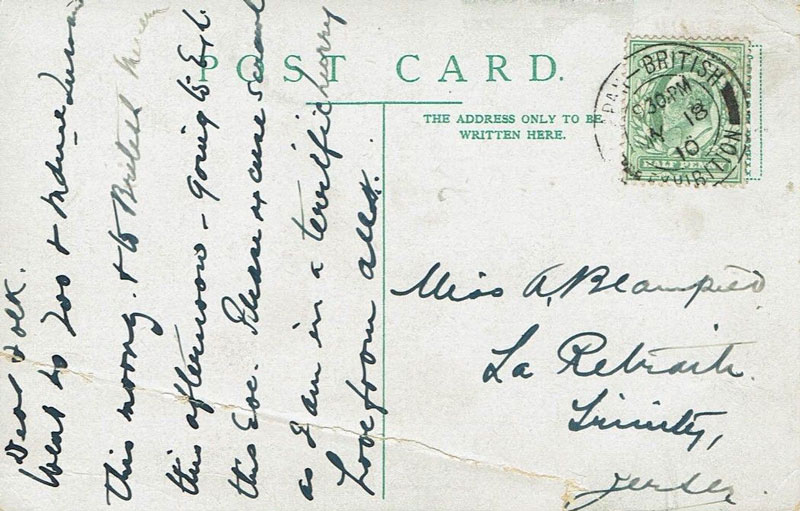 POST CARD.
THE ADDRESS ONLY TO BE
WRITTEN HERE.
Dear Folk.
Went to Zoo & Madame
this morng. & to British
this afternoon - going to
this Eve. Please excuse scrawl
as I am in a terrific hurry
Love from all.
Miss A. Blampied
La Retraite.
Trinity,
Jersey
BRITISH
30 PM
18
10
EXHIBITION
HALF PENNY